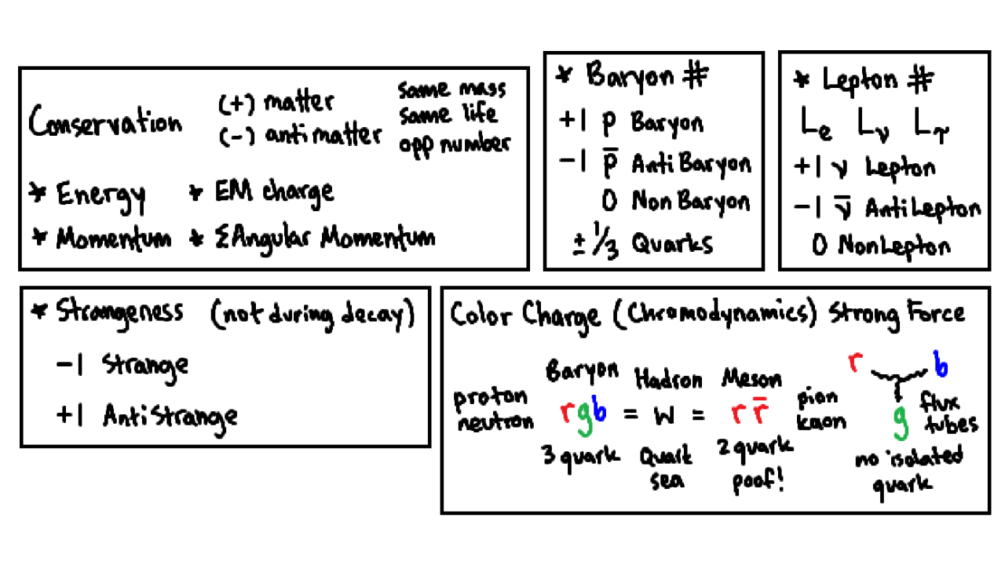 Conservation
(+) matter
(-) antimatter
same mass
same life
opp number
* Energy * EM charge
* Momentum * ΣAngular Momentum
* Baryon #
+1 p Baryon
-1 p̅ AntiBaryon
0 NonBaryon
± 1/3 Quarks
* Lepton #
Le Lν Lτ
+1 ν Lepton
-1 ν̅ AntiLepton
0 NonLepton
* Strangeness (not during decay)
-1 Strange
+1 AntiStrange
Color Charge (Chromodynamics) Strong Force
Baryon Hadron Meson
proton
neutron
rgb = w = r r̅
pion
kaon
3 quark
Quark
sea
2 quark
poof!
r b
g
flux
tubes
no isolated
quark